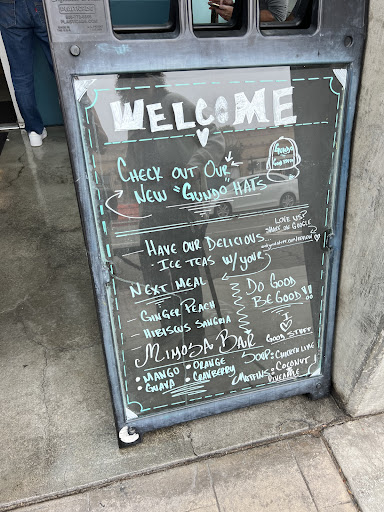 WELCOME
CHECK OUT OUR
NEW "GUNDO" HATS
GUNDO
LOVE US?
SHARE ON GOOGLE
- HAVE OUR DELICIOUS
· ICE TEAS W/ YOUR
NEXT MEAL
- GINGER PEACH
- HIBISCUS SANGRIA
DO GOOD
BE GOOD!!
I
GOOD STUFF
MIMOSA BAR
• MANGO • ORANGE
• GUAVA • CRANBERRY
SOUP: CHICKEN LIME
MUFFINS: COCONUT
PINEAPPLE